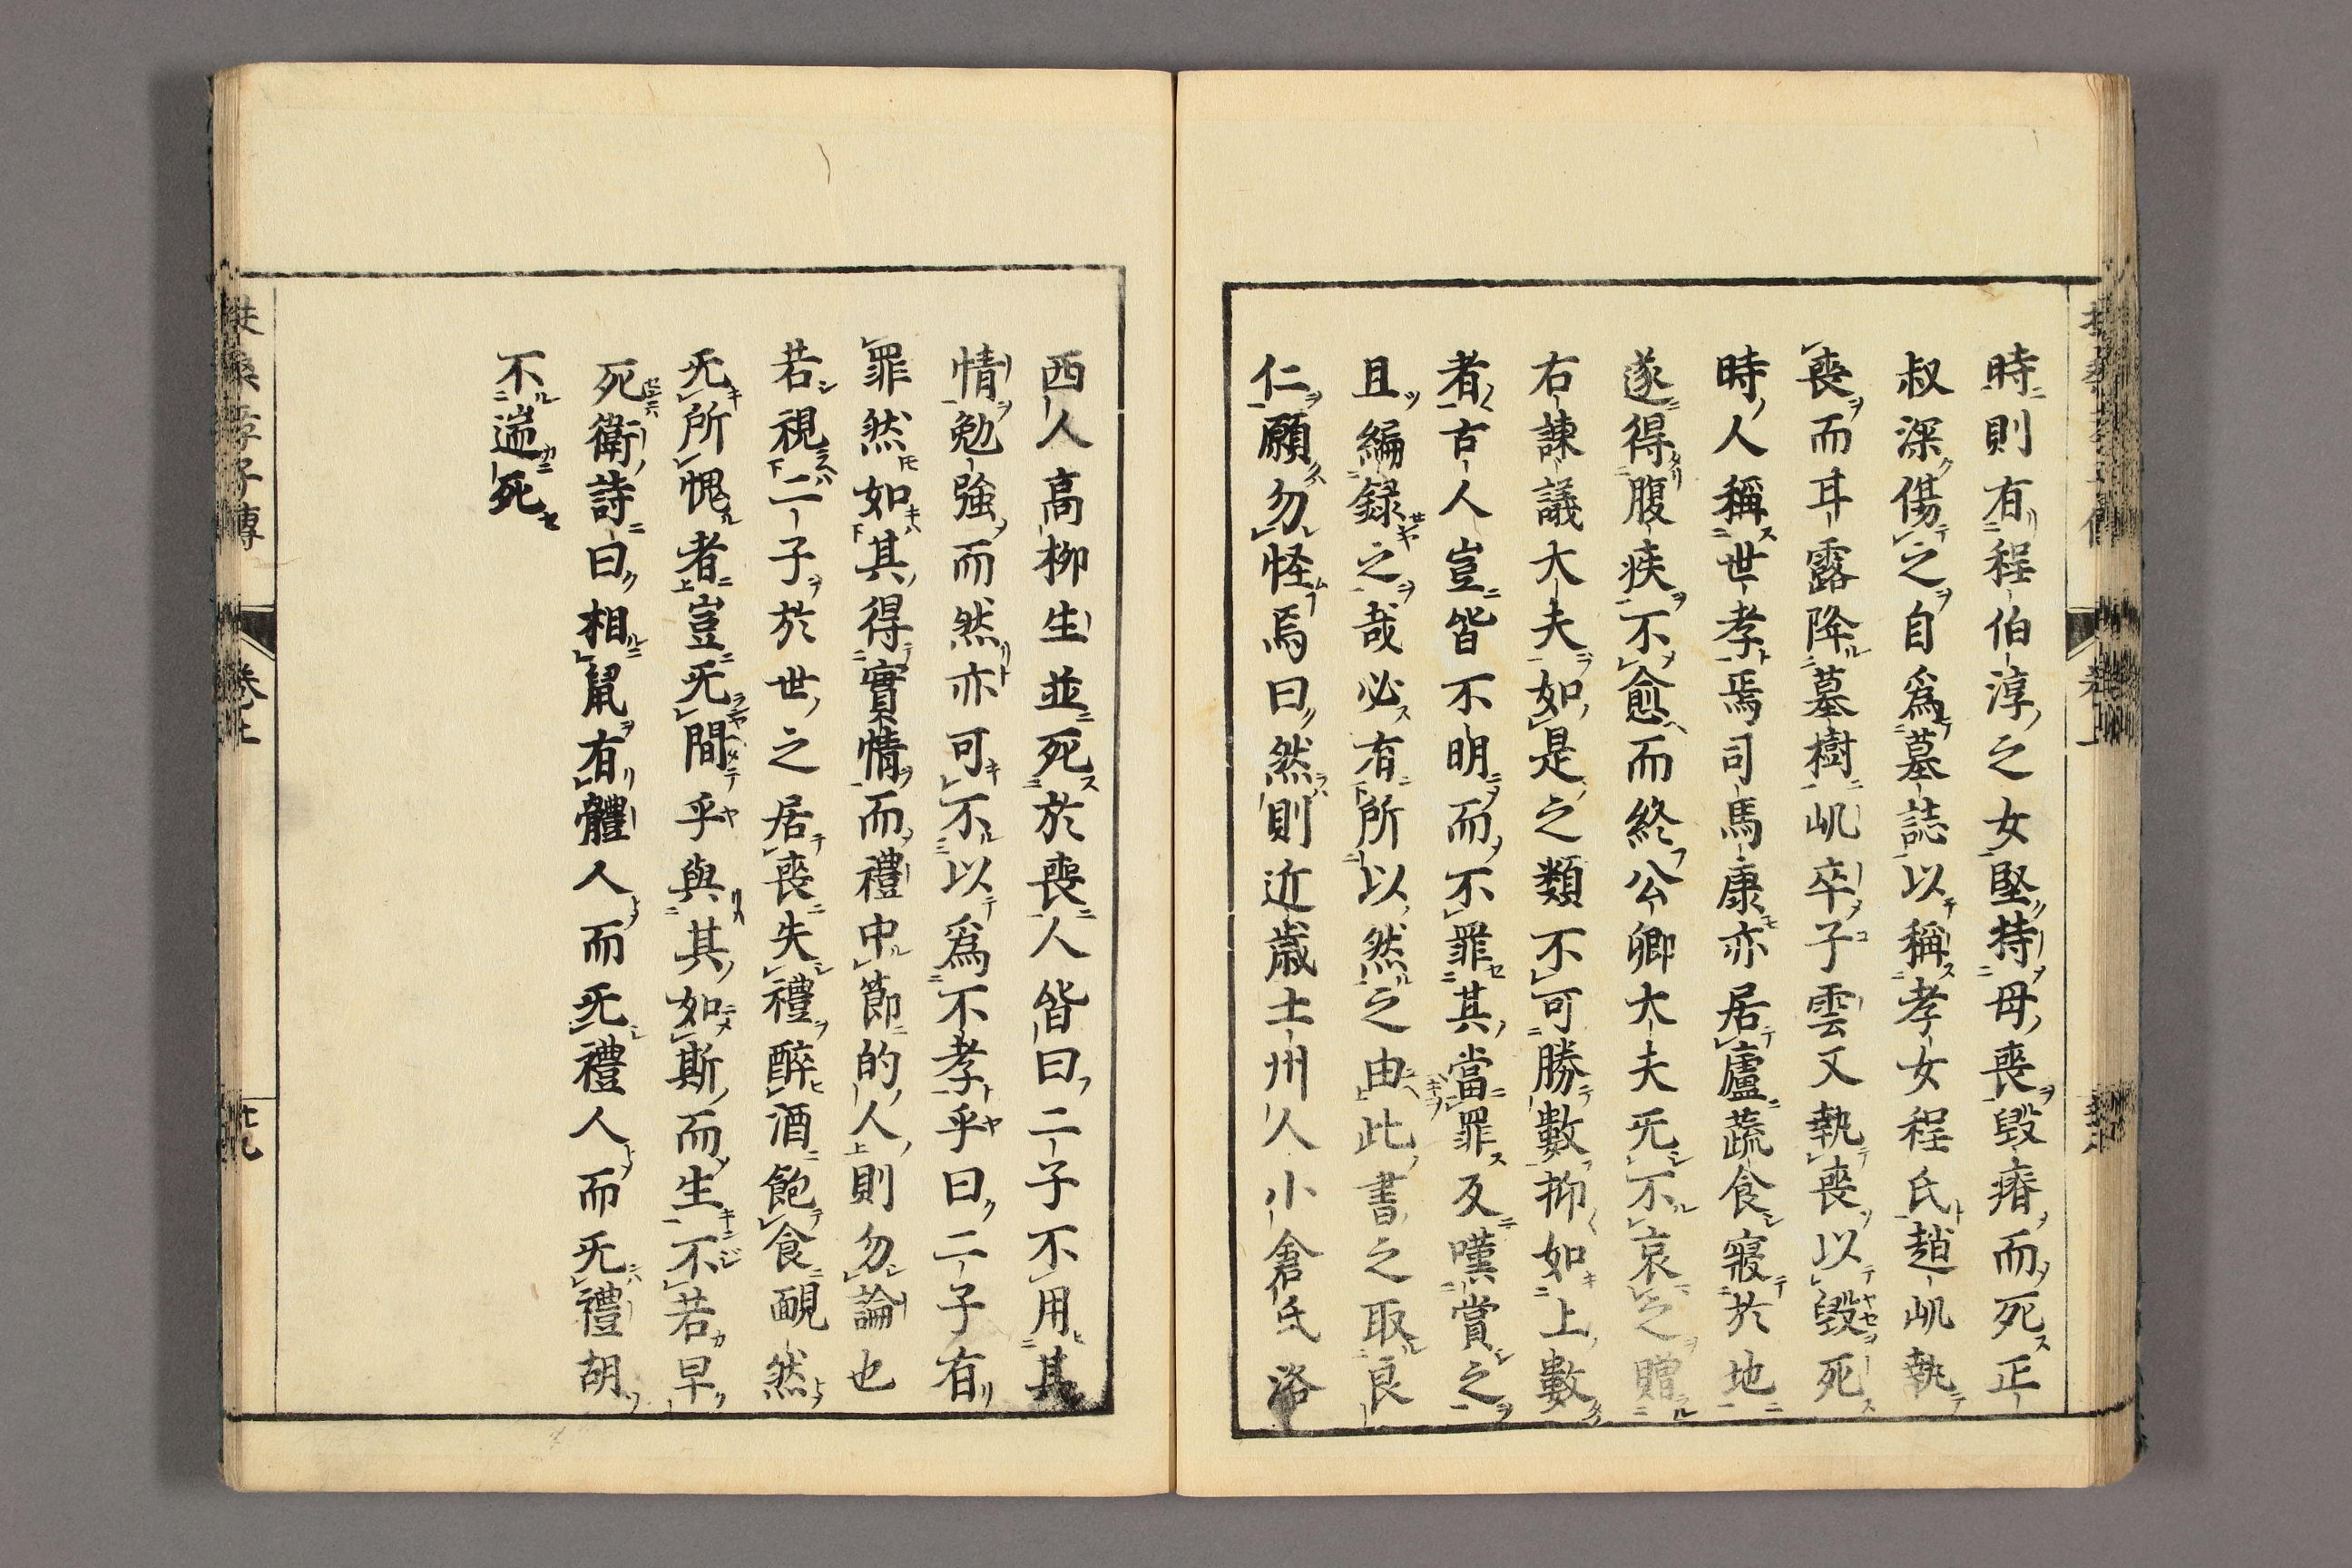 時則有程伯淳之女堅持母喪毀瘠而死正
叔深傷之自爲墓誌以稱孝女程氏趙㞦執
喪而甘露降墓樹㞦卒子雲又執喪以毀死
時人稱世孝焉司馬康亦居廬蔬食寢於地
遂得腹疾不愈而終公卿大夫无不哀之贈
右諫議大夫如是之類不可勝數抑如上數
者古人豈皆不明而不罪其當罪反嘆賞之
且編録之哉必有所以然之由此書之取良
仁願勿怪焉曰然則近歳士州人小倉氏洛
西人高柳生並死於喪人皆曰二子不用其
情勉強而然亦可不以爲不孝乎曰二子有
罪然如其得實情而禮中節的人則勿論也
若視二子於世之居喪失禮醉酒飽食靦然
无所愧者豈无間乎與其如斯而生不若早
死衛詩曰相鼠有體人而无禮人而无禮胡
不遄死
孝子傳
卷上